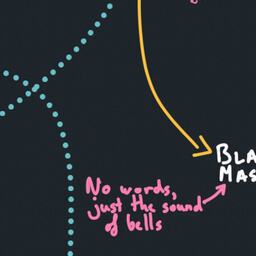 BLA
MAS
No words,
just the sound
of bells